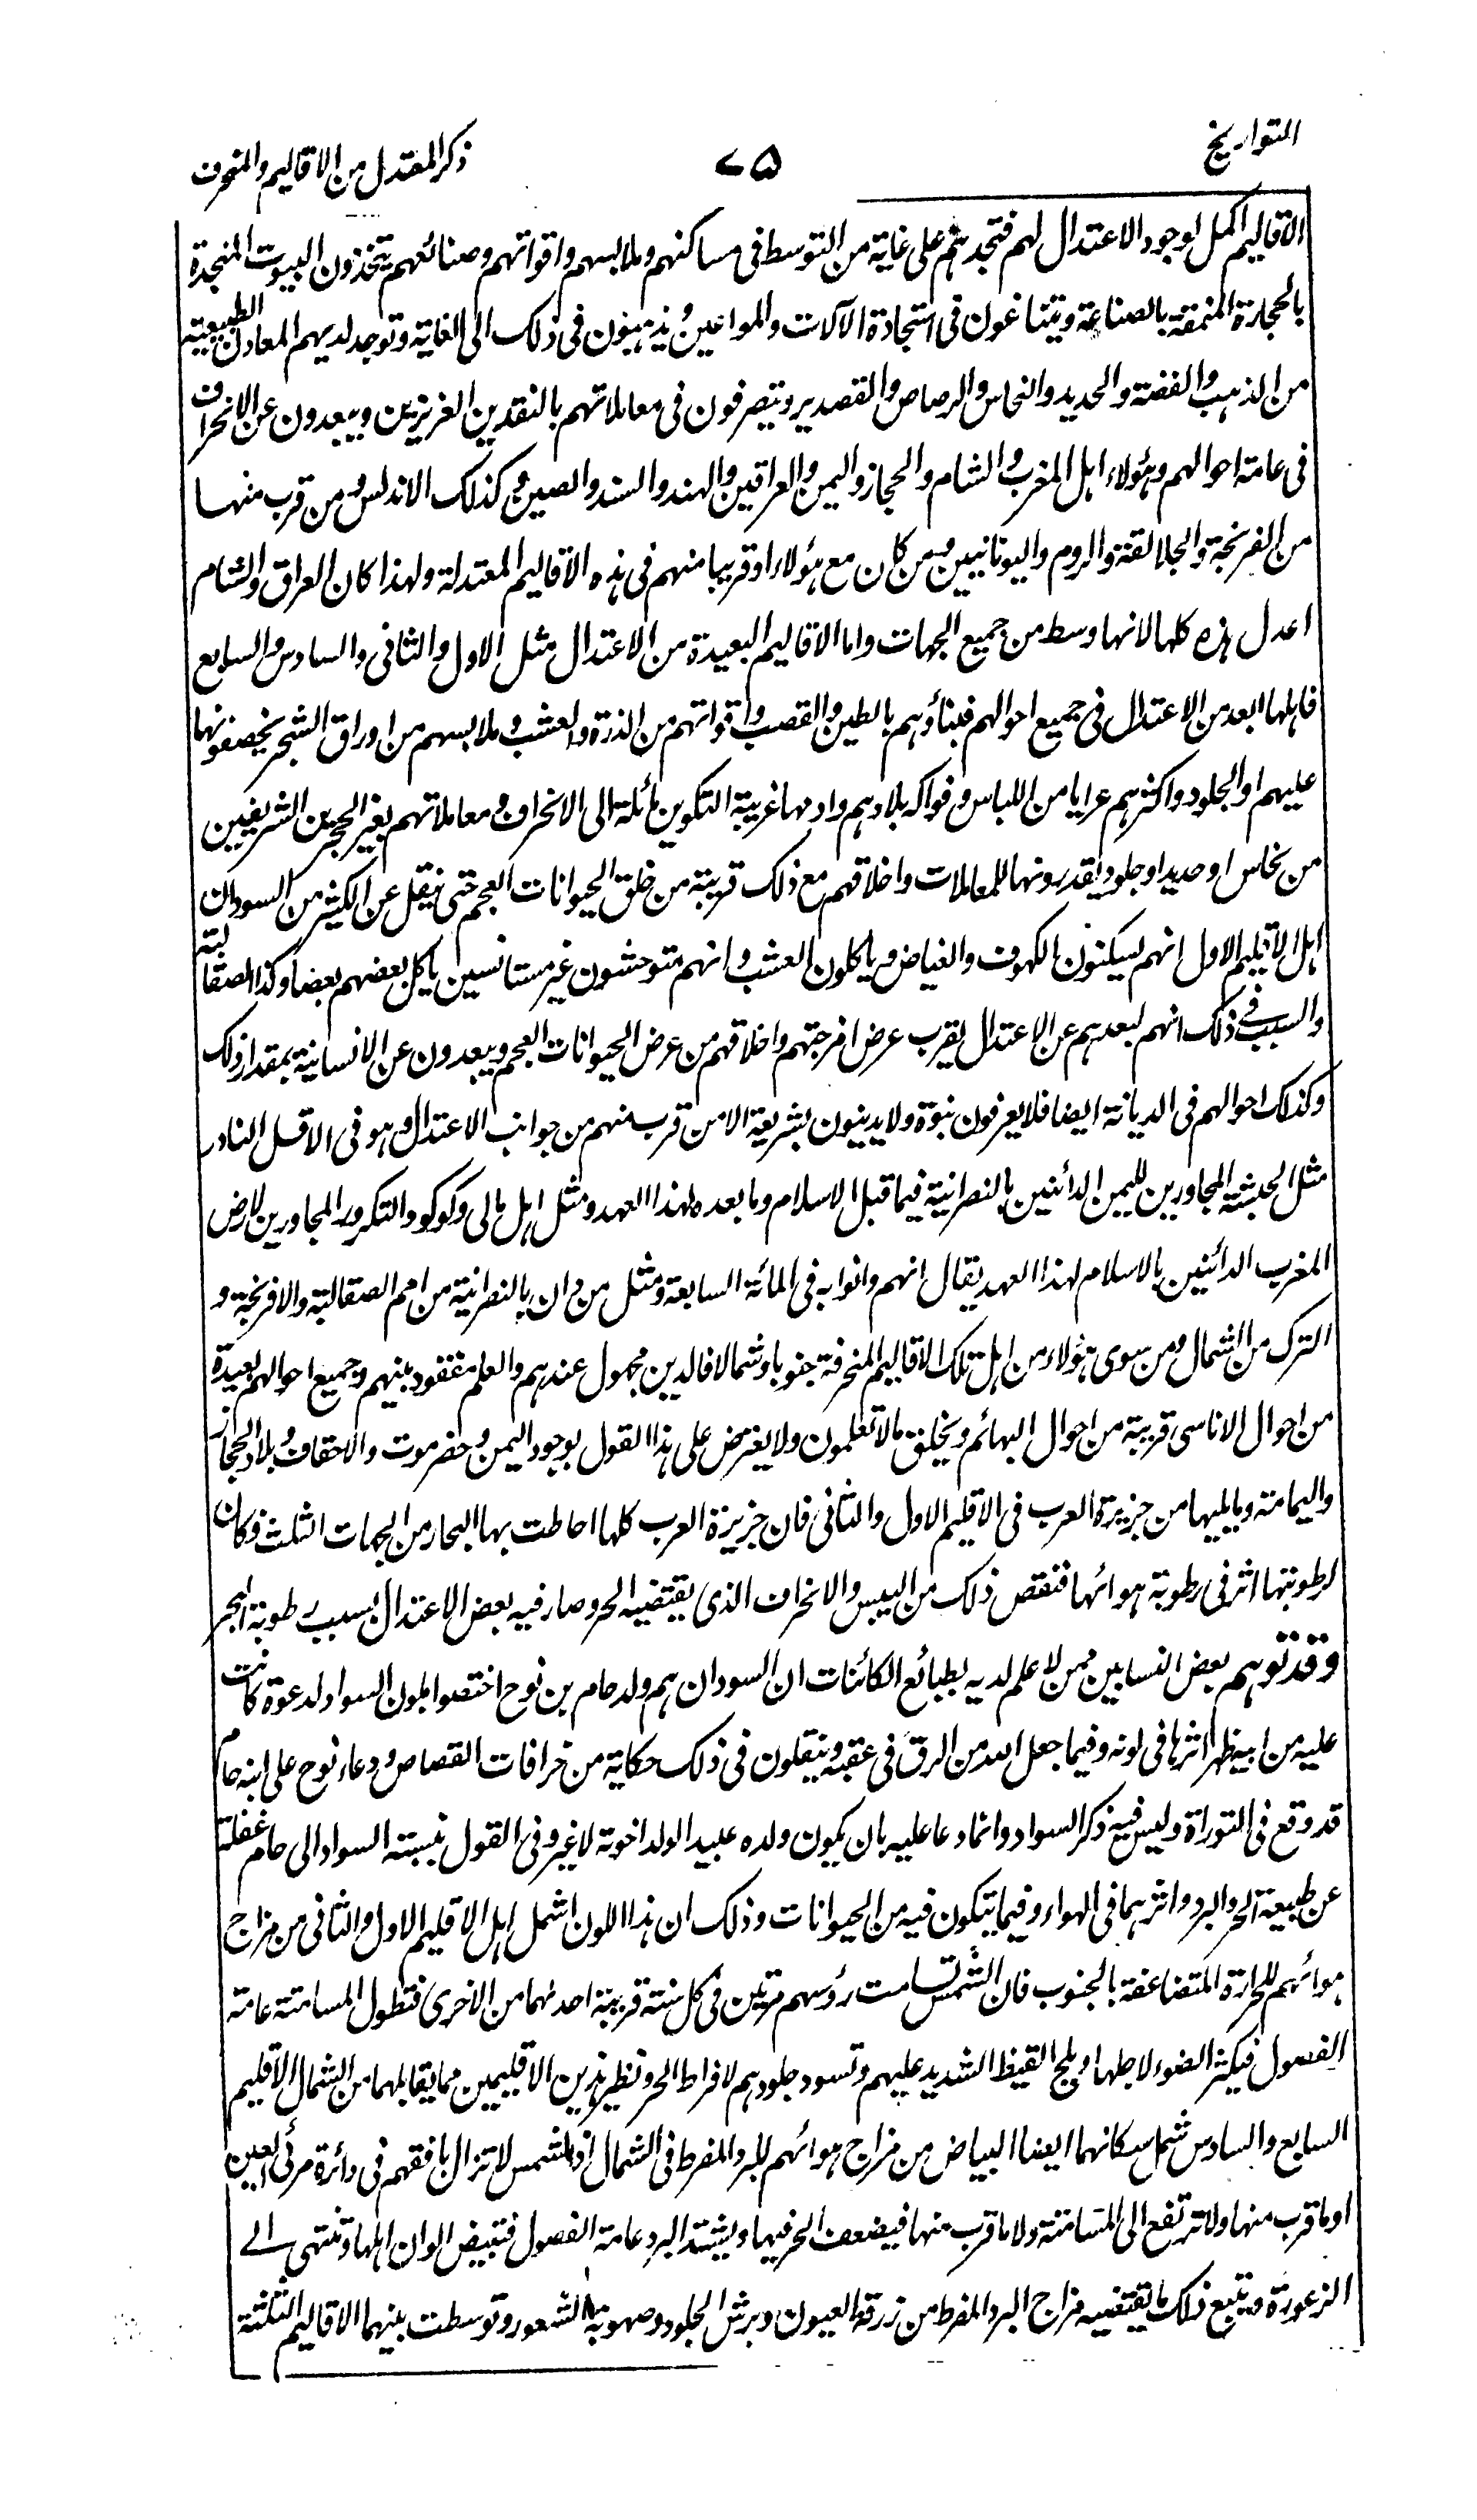 التواريخ
٧٥
ذكر المعتدل من الاقاليم والمنحرف
الاقاليم اكمل لوجود الاعتدال لهم فتجدهم على غاية من التوسط فى مساكنهم وملابسهم واقواتهم وصنائعهم يتخذون البيوت المنجدة
بالحجارة المنمقة بالصناعة ويتناغون فى استجادة الآلات والمواعين ويذهبون فى ذلك الى الغاية وتوجد لديهم المعادن الطبيعية
من الذهب والفضة والحديد والنحاس والرصاص والقصدير ويتصرفون فى معاملاتهم بالنقدين العزيزين ويبعدون عن الانحراف
فى عامة احوالهم وهؤلاء اهل المغرب والشام والحجاز واليمن والعراقين والهند والسند والصين وكذلك الاندلس ومن قرب منها
من الفرنجة والجلالقة والروم واليونانيين ومن كان مع هؤلاء او قريبا منهم فى هذه الاقاليم المعتدلة ولهذا كان العراق والشام
اعدل هذه كلها لانها وسط من جميع الجهات واما الاقاليم البعيدة من الاعتدال مثل الاول والثانى والسادس والسابع
فاهلها ابعد من الاعتدال فى جميع احوالهم فبناؤهم بالطين والقصب واقواتهم من الذرة والعشب وملابسهم من اوراق الشجر يخصفونها
عليهم او الجلود واكثرهم عرايا من اللباس وفواكه بلادهم وادمها غريبة التكوين مائلة الى الانحراف ومعاملاتهم بغير الحجرين الشريفين
من نحاس او حديد او جلود يقدرونها للمعاملات واخلاقهم مع ذلك قريبة من خلق الحيوانات العجم حتى ينقل عن الكثير من السودان
اهل الاقليم الاول انهم يسكنون الكهوف والغياض وياكلون العشب وانهم متوحشون غير مستانسين ياكل بعضهم بعضا وكذا الصقالبة
والسبب فى ذلك انهم لبعدهم عن الاعتدال يقرب عرض امزجتهم واخلاقهم من عرض الحيوانات العجم ويبعدون عن الانسانية بمقدار ذلك
وكذلك احوالهم فى الديانة ايضا فلا يعرفون نبوة ولا يدينون بشريعة الا من قرب منهم من جوانب الاعتدال وهو فى الاقل النادر
مثل الحبشة المجاورين لليمن الدائنين بالنصرانية فيما قبل الاسلام وما بعده لهذا العهد ومثل اهل مالى وكوكو والتكرور المجاورين لارض
المغرب الدائنين بالاسلام لهذا العهد يقال انهم دانوا به فى المائة السابعة ومثل من دان بالنصرانية من امم الصقالبة والافرنجة و
الترك من الشمال ومن سوى هؤلاء من اهل تلك الاقاليم المنحرفة جنوبا وشمالا فالدين مجهول عندهم والعلم مفقود بينهم وجميع احوالهم بعيدة
من احوال الاناسى قريبة من احوال البهائم ويخلق ما لا تعلمون ولا يعترض على هذا القول بوجود اليمن وحضرموت والاحقاف وبلاد الحجاز
واليمامة وما يليها من جزيرة العرب فى الاقليم الاول والثانى فان جزيرة العرب كلها احاطت بها البحار من الجهات الثلث فكان
لرطوبتها اثر فى رطوبة هوائها فنقص ذلك من اليبس والانحراف الذى يقتضيه الحر وصار فيه بعض الاعتدال بسبب رطوبة البحر
وقد توهم بعض النسابين ممن لا علم لديه بطبائع الكائنات ان السودان هم ولد حام بن نوح اختصوا بلون السواد لدعوة كانت
عليه من ابيه ظهر اثرها فى لونه وفيما جعل الله من الرق فى عقبه وينقلون فى ذلك حكاية من خرافات القصاص ودعاء نوح على ابنه حام
قد وقع فى التوراة وليس فيه ذكر السواد وانما دعا عليه بان يكون ولده عبيدا لولد اخوته لا غير وفى القول بنسبة السواد الى حام غفلة
عن طبيعة الحر والبرد واثرهما فى الهواء وفيما يتكون فيه من الحيوانات وذلك ان هذا اللون اشمل اهل الاقليم الاول والثانى من مزاج
هوائهم للحرارة المتضاعفة بالجنوب فان الشمس تسامت رؤسهم مرتين فى كل سنة قريبة احدىهما من الاخرى فتطول المسامتة عامة
الفصول فيكثر الضوء لاجلها ويلج القيظ الشديد عليهم وتسود جلودهم لافراط الحر ونظير هذين الاقليمين مما يقابلهما من الشمال الاقليم
السابع والسادس شمل سكانهما ايضا البياض من مزاج هوائهم للبرد المفرط فى الشمال اذ الشمس لا تزال بافقهم فى دائرة مرئى العين
او ما قرب منها ولا ترتفع الى المسامتة ولا ما قرب منها فيضعف الحر فيها ويشتد البرد عامة الفصول فتبيض الوان اهلها وتنتهى الى
الزعورة ويتبع ذلك ما يقتضيه مزاج البرد المفرط من زرقة العيون وبرش الجلود وصهوبة الشعور وتوسطت بينهما الاقاليم الثلثة